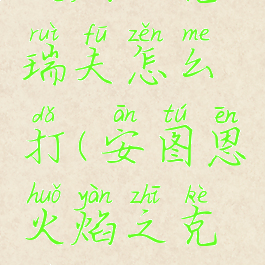 ruì fū zěn me
瑞夫怎么
dǎ ān tú ēn
打(安图恩
huǒ yàn zhī kè
火焰之克